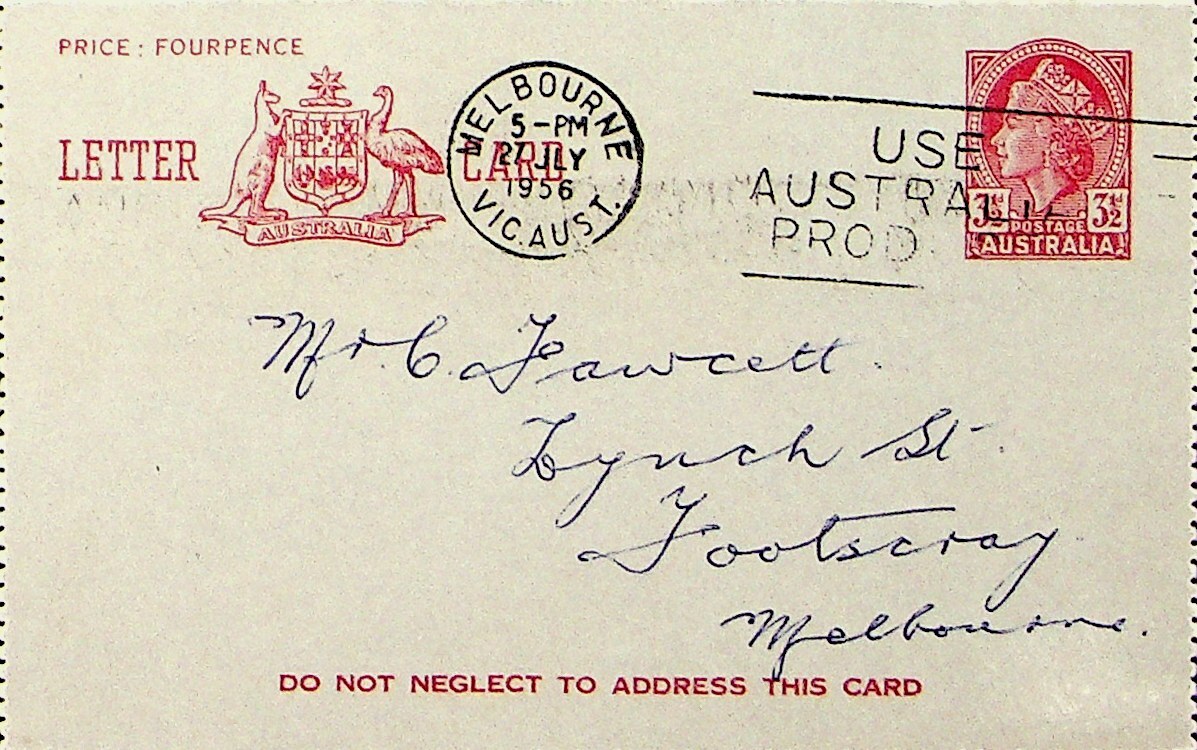 PRICE : FOURPENCE
LETTER CARD
AUSTRALIA
MELBOURNE
5-PM
27 JLY
1956
VIC. AUST.
USE
AUSTRALI
PROD
3½D 3½D
POSTAGE
AUSTRALIA
Mr C. Fawcett.
Lynch St.
Footscray
Melbourne.
DO NOT NEGLECT TO ADDRESS THIS CARD